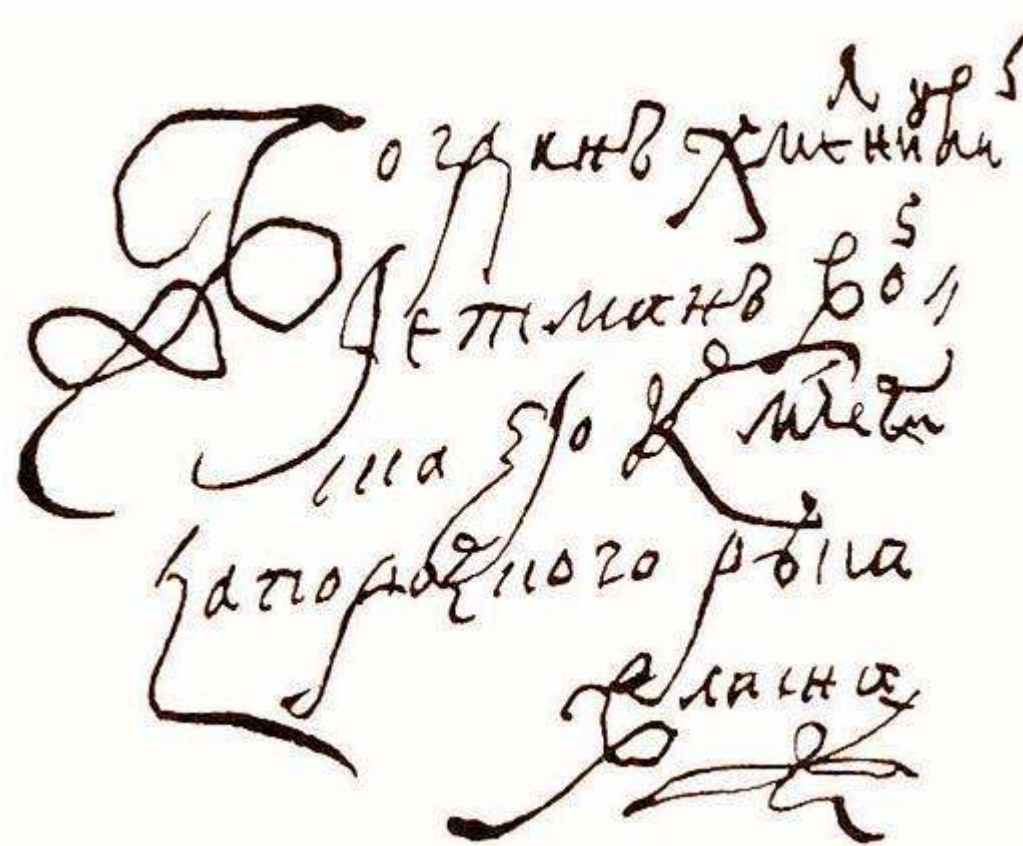 Богданъ Хмелницки
Гетманъ Вой
ска его К милости
Запорозкого рѣка
Власна